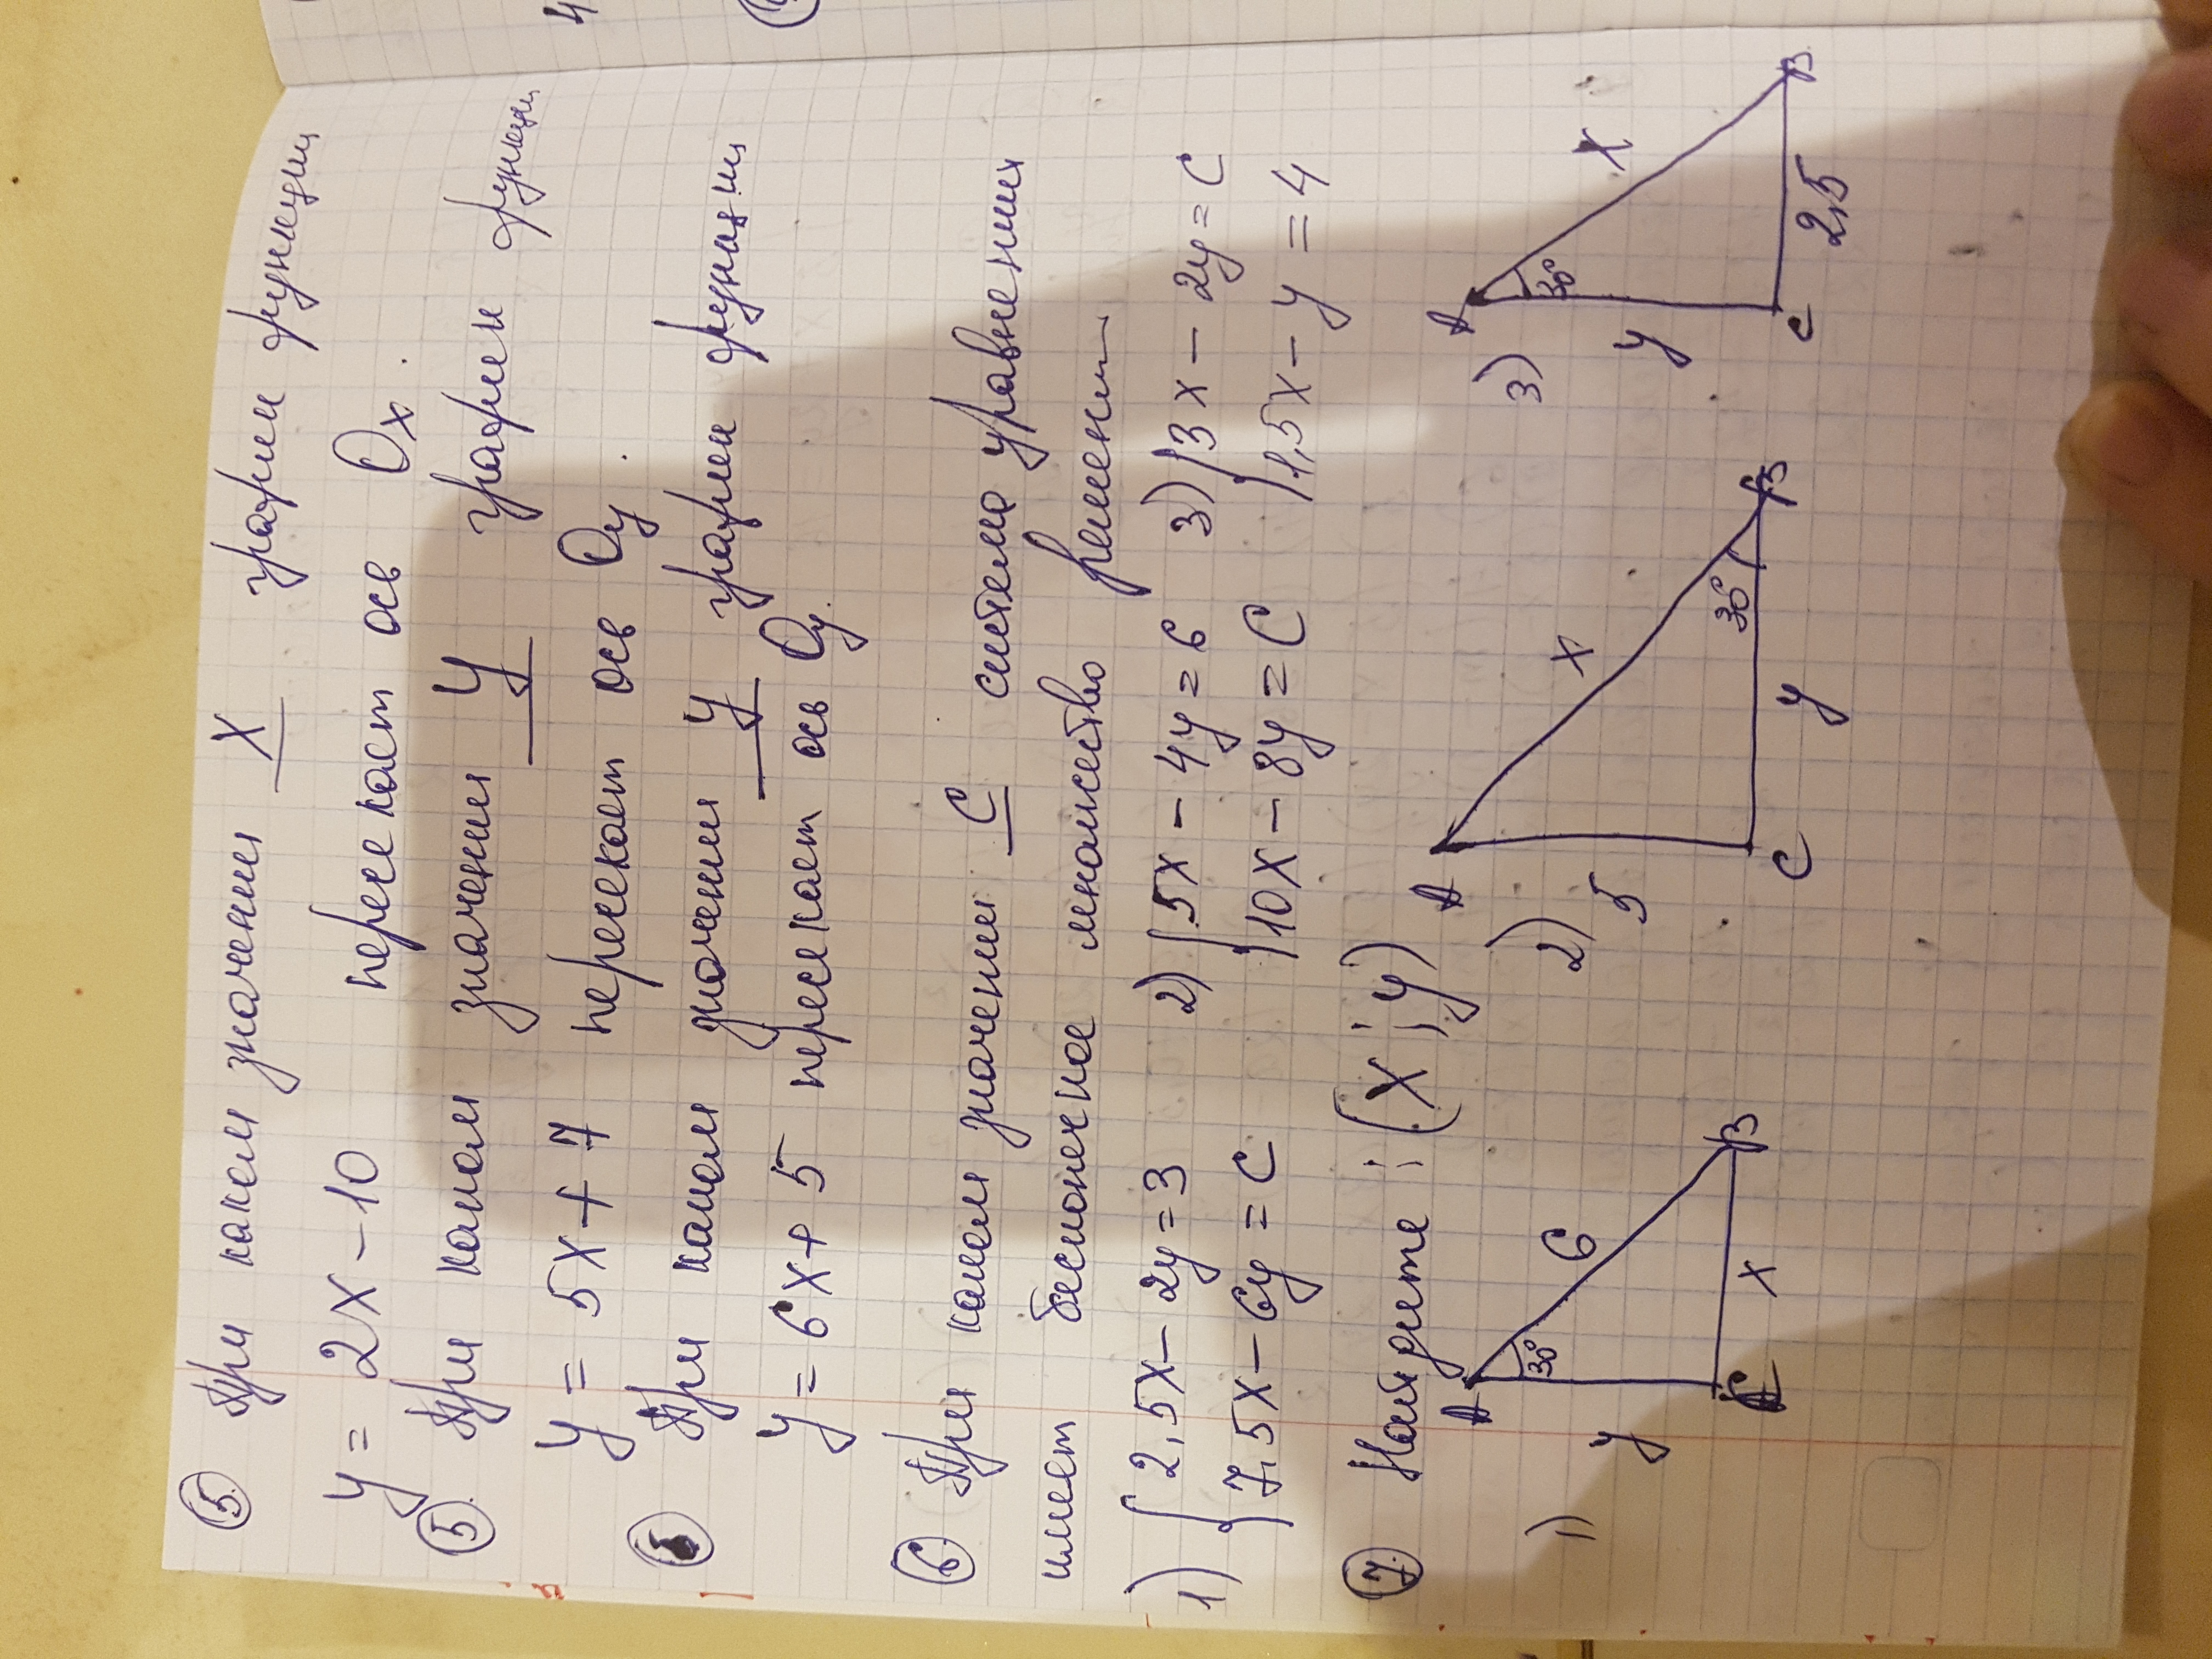 ⑤ При каком значении x график функции
y = 2x - 10 пересекает ось Ox.
⑤ При каком значении y график функции
y = 5x + 7 пересекает ось Oy.
⑤ При каком значении y график функции
y = 6x + 5 пересекает ось Oy.
⑥ При каком значении C система уравнений
имеет бесконечное множество решений
1) { 2,5x - 2y = 3 2) { 5x - 4y = 6 3) { 3x - 2y = C
7,5x - 6y = C 10x - 8y = C 1,5x - y = 4
⑦ Найдите: (x; y)
1) A 30° 6 y x C B
2) A 5 x 30° y C B
3) A 30° x y C 2,5 B
4